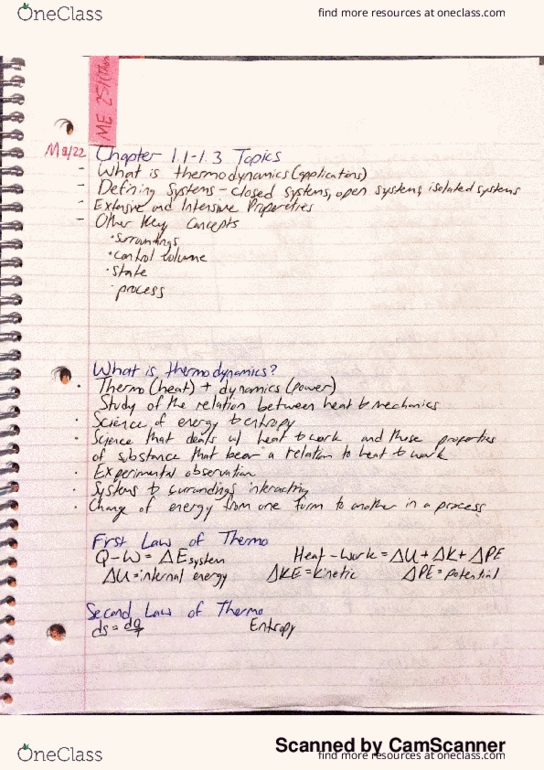 OneClass
find more resources at oneclass.com
ME 251
M 8/22
Chapter 1.1-1.3 Topics
- What is thermodynamics (applications)
- Defining Systems - closed systems, open systems, isolated systems
- Extensive and Intensive Properties
- Other Key Concepts
• surroundings
• control volume
• state
• process
What is thermodynamics?
• Thermo (heat) + dynamics (power)
Study of the relation between heat & mechanics
• Science of energy & entropy
• Science that deals w/ heat & work and those properties
of substance that bear a relation to heat & work
• Experimental observation
• Systems & surroundings interacting
• Change of energy from one form to another in a process
First Law of Thermo
Q-W = ΔE system
Heat - Work = ΔU + ΔK + ΔPE
ΔU = internal energy
ΔKE = kinetic
ΔPE = potential
Second Law of Thermo
ds = dq/T
Entropy
Scanned by CamScanner
OneClass
find more resources at oneclass.com